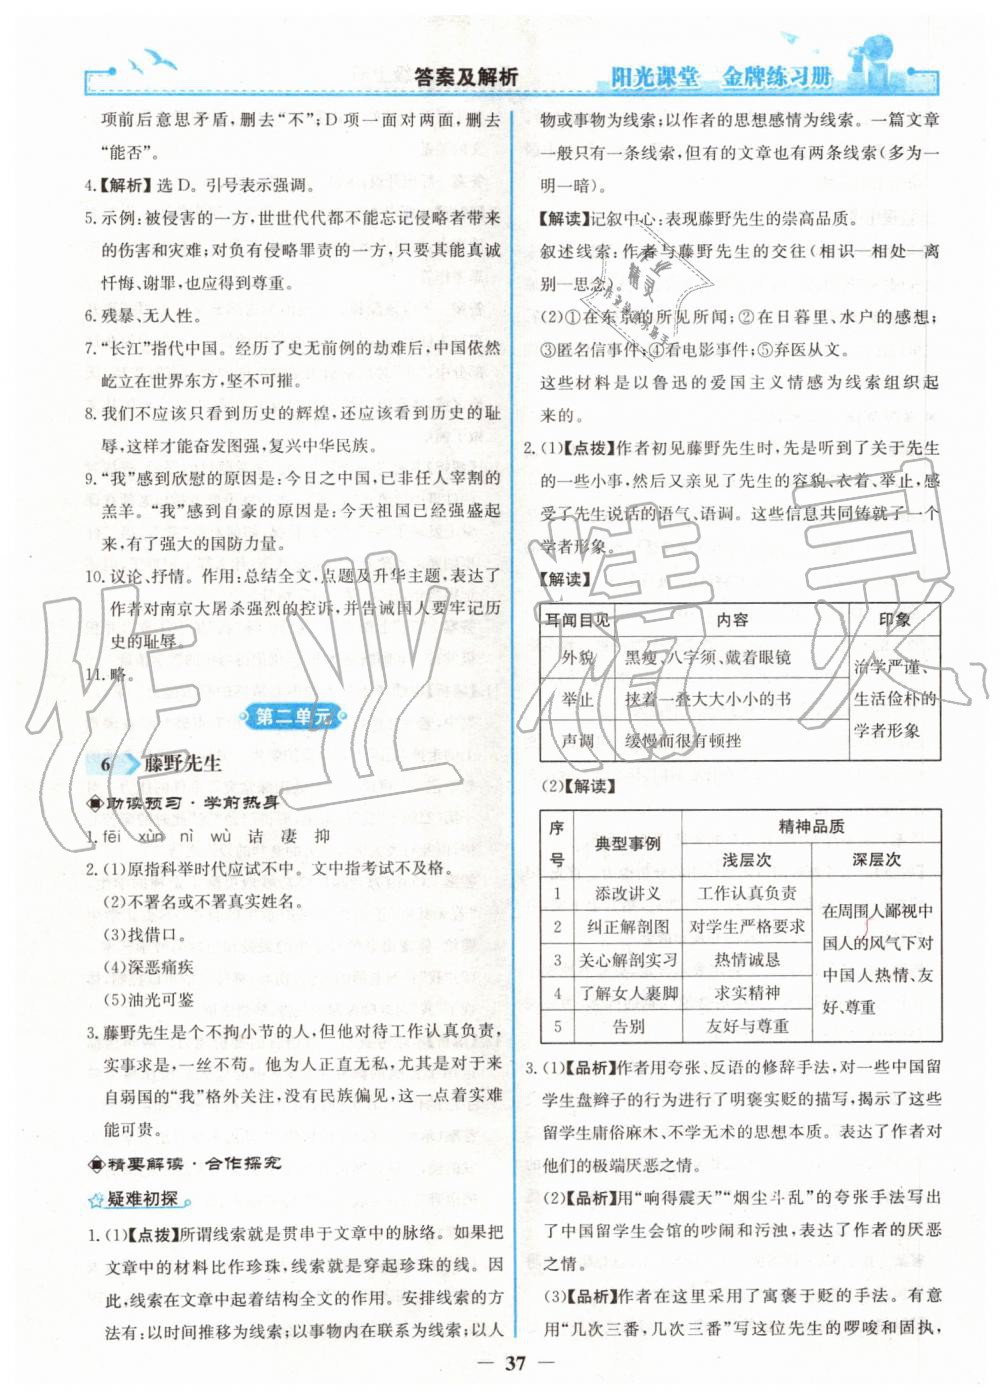 答案及解析
阳光课堂 金牌练习册
项前后意思矛盾，删去“不”；D 项一面对两面，删去
“能否”。
4.【解析】选 D。引号表示强调。
5. 示例：被侵害的一方，世世代代都不能忘记侵略者带来
的伤害和灾难；对负有侵略罪责的一方，只要其能真诚
忏悔、谢罪，也应得到尊重。
6. 残暴、无人性。
7. “长江”指代中国。经历了史无前例的劫难后，中国依然
屹立在世界东方，坚不可摧。
8. 我们不应该只看到历史的辉煌，还应该看到历史的耻
辱，这样才能奋发图强，复兴中华民族。
9. “我”感到欣慰的原因是：今日之中国，已非任人宰割的
羔羊。“我”感到自豪的原因是：今天祖国已经强盛起
来，有了强大的国防力量。
10. 议论、抒情。作用：总结全文，点题及升华主题，表达了
作者对南京大屠杀强烈的控诉，并告诫国人要牢记历
史的耻辱。
11. 略。
第二单元
6 藤野先生
助读预习·学前热身
1. fēi xùn nì wù 诘 凄 抑
2. (1)原指科举时代应试不中。文中指考试不及格。
(2)不署名或不署真实姓名。
(3)找借口。
(4)深恶痛疾
(5)油光可鉴
3. 藤野先生是个不拘小节的人，但他对待工作认真负责，
实事求是，一丝不苟。他为人正直无私，尤其是对于来
自弱国的“我”格外关注，没有民族偏见，这一点着实难
能可贵。
精要解读·合作探究
疑难初探
1. (1)【点拨】所谓线索就是贯串于文章中的脉络。如果把
文章中的材料比作珍珠，线索就是穿起珍珠的线。因
此，线索在文章中起着结构全文的作用。安排线索的方
法有：以时间推移为线索；以事物内在联系为线索；以人
物或事物为线索；以作者的思想感情为线索。一篇文章
一般只有一条线索，但有的文章也有两条线索（多为一
明一暗）。
【解读】记叙中心：表现藤野先生的崇高品质。
叙述线索：作者与藤野先生的交往（相识—相处—离
别—思念）。
(2)①在东京的所见所闻；②在日暮里、水户的感想；
③匿名信事件；④看电影事件；⑤弃医从文。
这些材料是以鲁迅的爱国主义情感为线索组织起
来的。
2. (1)【点拨】作者初见藤野先生时，先是听到了关于先生
的一些小事，然后又亲见了先生的容貌、衣着、举止，感
受了先生说话的语气、语调。这些信息共同铸就了一个
学者形象。
【解读】
耳闻目见 内容 印象
外貌 黑瘦、八字须、戴着眼镜 治学严谨、
举止 挟着一叠大大小小的书 生活俭朴的
声调 缓慢而很有顿挫 学者形象
(2)【解读】
序号 典型事例 精神品质
浅层次 深层次
1 添改讲义 工作认真负责 在周围人鄙视中
2 纠正解剖图 对学生严格要求 国人的风气下对
3 关心解剖实习 热情诚恳 中国人热情、友
4 了解女人裹脚 求实精神 好、尊重
5 告别 友好与尊重
3. (1)【品析】作者用夸张、反语的修辞手法，对一些中国留
学生盘辫子的行为进行了明褒实贬的描写，揭示了这些
留学生庸俗麻木、不学无术的思想本质。表达了作者对
他们的极端厌恶之情。
(2)【品析】用“响得震天”“烟尘斗乱”的夸张手法写出
了中国留学生会馆的吵闹和污浊，表达了作者的厌恶
之情。
(3)【品析】作者在这里采用了寓褒于贬的手法。有意
用“几次三番，几次三番”写这位先生的啰唆和固执，
— 37 —
作业精灵